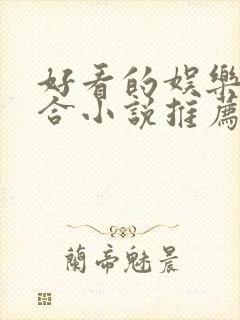 好看的娛樂
合小說推薦
蘭帝魅晨